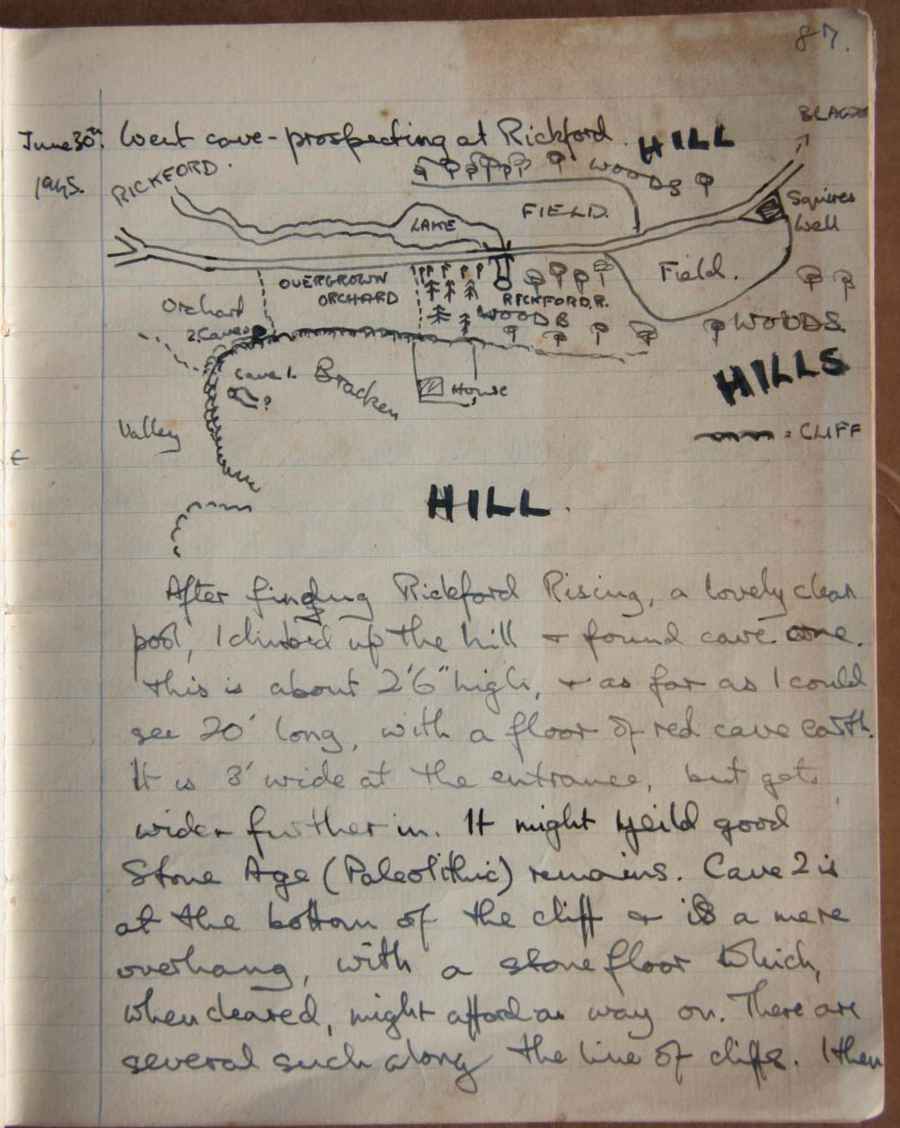 87.
June 30th. Went cave-prospecting at Rickford.
1945.
HILL
BLAGDON
RICKFORD.
WOODS
LAKE
FIELD.
Squires
Well
OVERGROWN
ORCHARD
Field.
Orchard
RICKFORD.R.
WOODS
WOODS.
2.Caves
Cave 1.
?
Bracken
House
HILLS
Valley
= CLIFF
HILL.
After finding Rickford Rising, a lovely clear
pool, I climbed up the hill + found cave one.
This is about 2'6" high, + as far as I could
see 20' long, with a floor of red cave earth.
It is 3' wide at the entrance, but gets
wider further in. It might yeild good
Stone Age (Paleolithic) remains. Cave 2 is
at the bottom of the cliff + is a mere
overhang, with a stone floor which,
when cleared, might afford a way on. There are
several such along the line of cliffs. I then